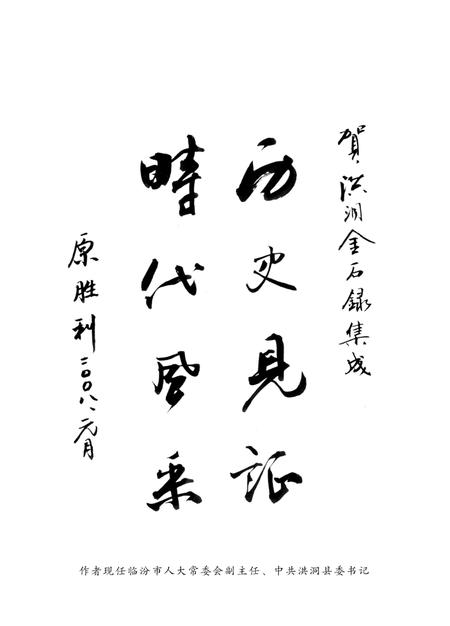 賀洪洞金石録集成
历史見证
時代風采
原胜利二〇〇八、元月
作者现任临汾市人大常委会副主任、中共洪洞县委书记